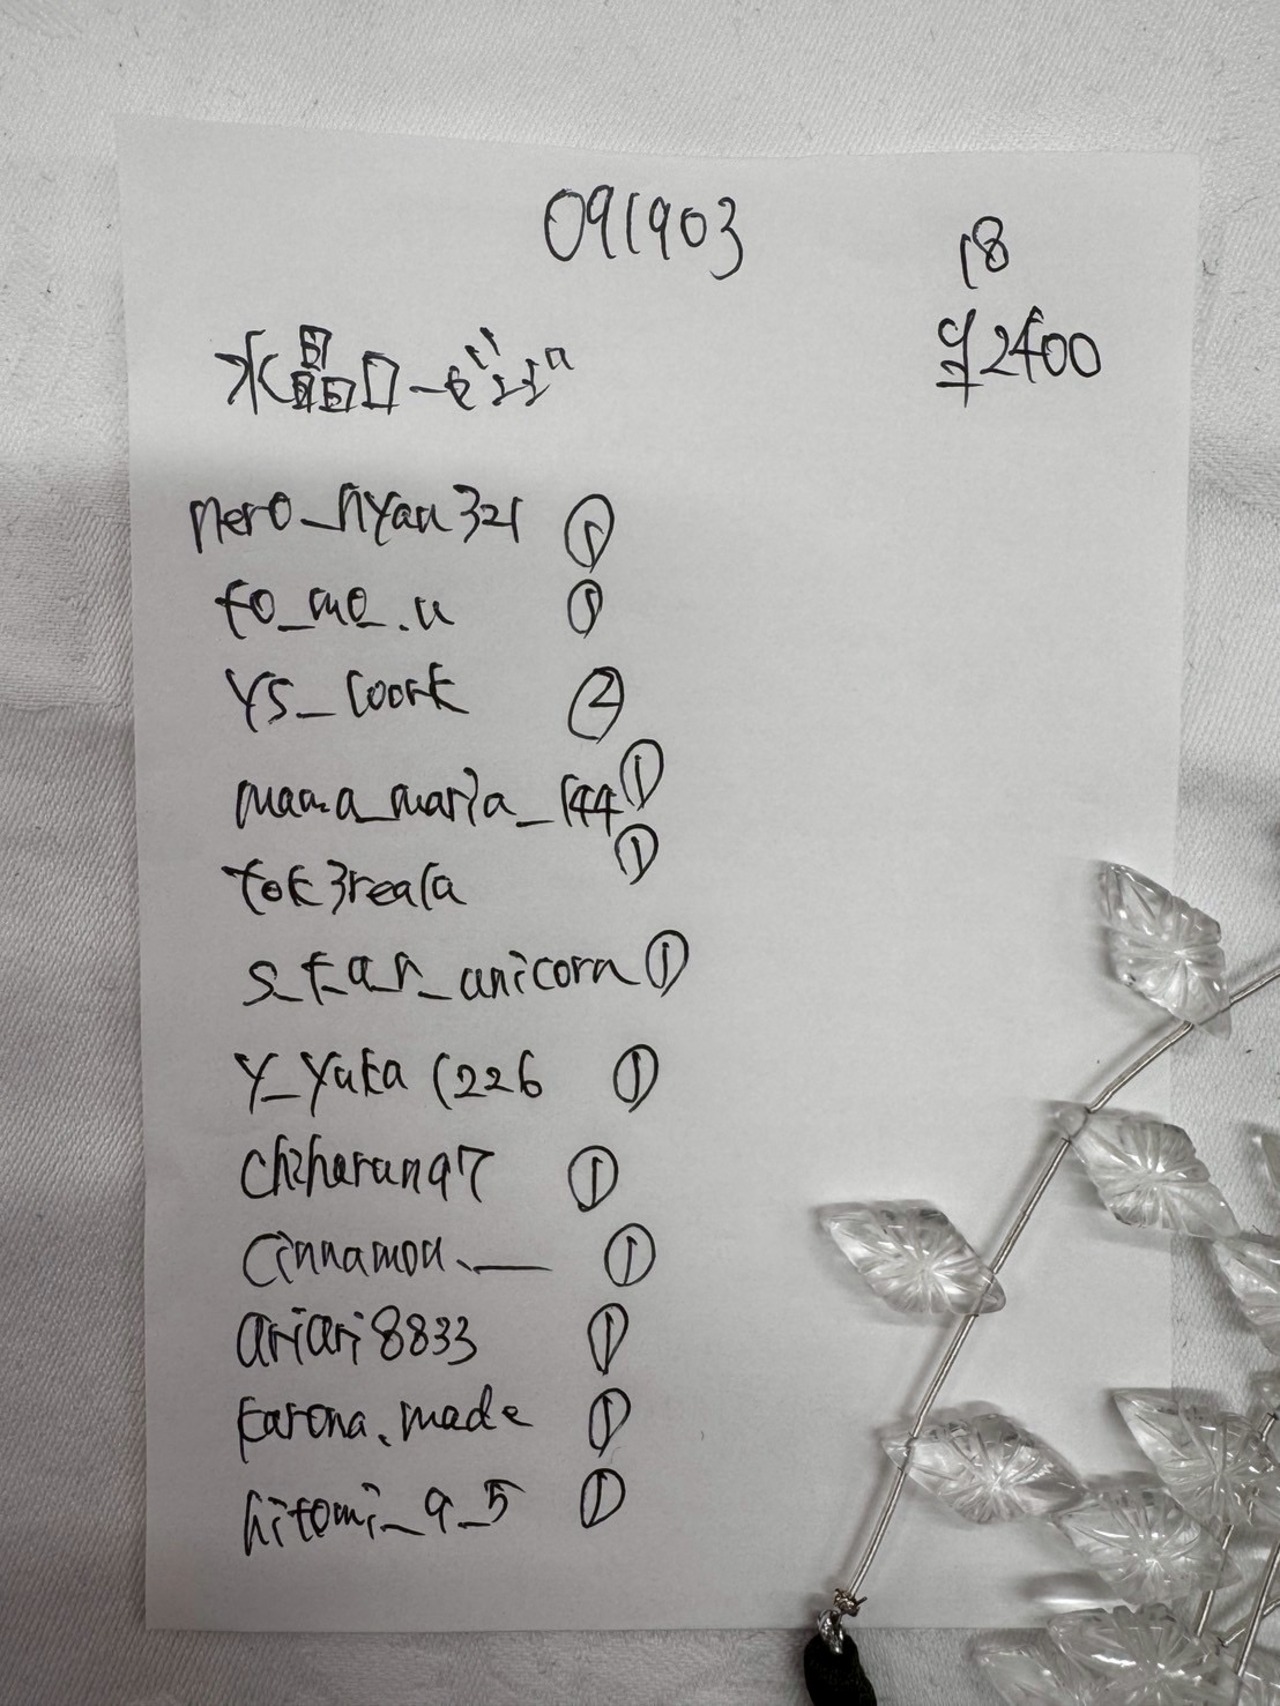 091903
18
¥2400
水晶ローゼンユ"
nero_nyan321 ①
to_mo_.u ①
YS_coork ②
mama_maria_144 ①
tok3reala ①
s_t_a_r_unicorn ①
Y_Yuka1226 ①
chiharun97 ①
cinnamon.__ ①
ariari8833 ①
karona.made ①
hitomi_9_5 ①